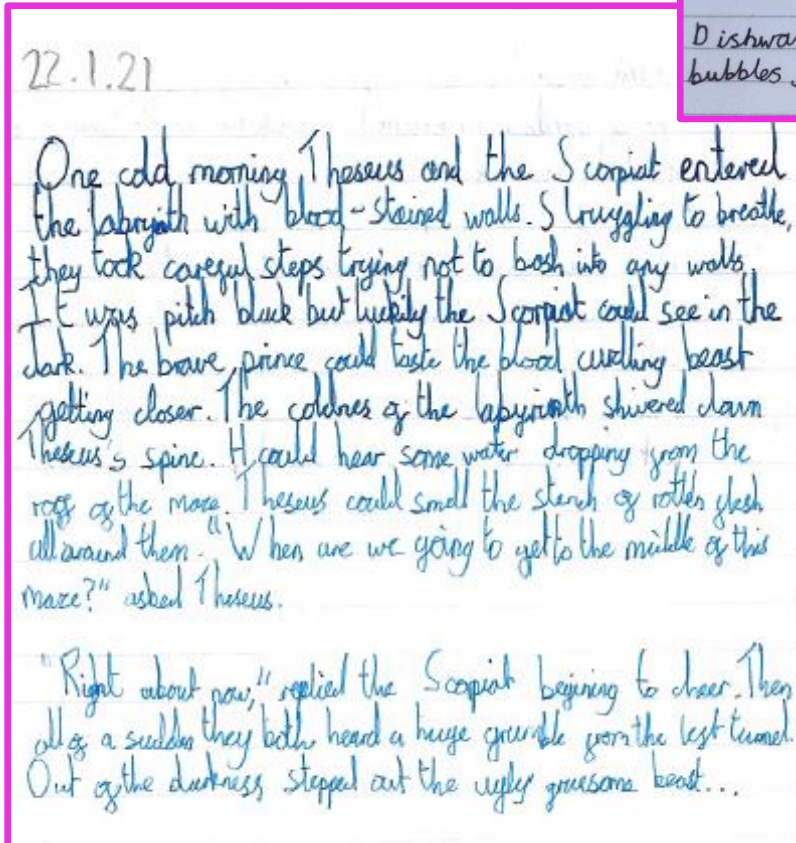 Dishwa
bubbles
22.1.21
One cold morning Theseus and the Scorpiat entered
the labrynth with blood-stained walls. Struggling to breathe,
they took careful steps trying not to bash into any walls.
It was pitch black but luckily the Scorpiat could see in the
dark. The brave prince could taste the blood curdling beast
getting closer. The coldnes of the labyrinth shivered down
Theseus's spine. H could hear some water dropping from the
roof of the maze. Theseus could smell the stench of rotten flesh
all around them. "When are we going to get to the middle of this
maze?" asked Theseus.
"Right about now," replied the Scorpiat begining to cheer. Then
all of a sudden they both heard a huge grumble from the left tunnel.
Out of the darkness stepped out the ugly gruesome beast...